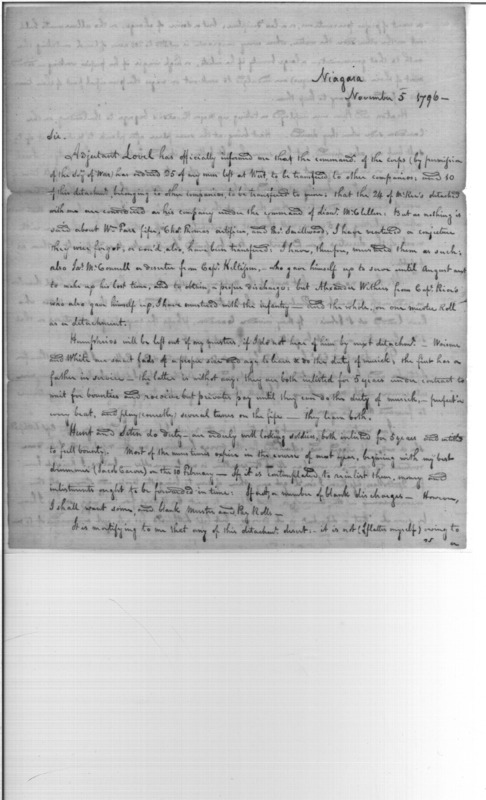 Niagara
November 5 1796 —
Sir.
Adjutant Lovell has officially informed me that the command.t of the corps (by permission
of the Sec.y of War) has ordered 25 of my men left at West. to be transfer'd to other companies; and 10
of this detachm.t belonging to other companies, to be transfer'd to mine: that the 24 of M.cRea's detached
with me are considered as his company under the command of Lieut. M.cClallen. But as nothing is
said about W.m Parr fifer, Cha.s artificer, and Smallwood, I have ventured a conjecture
they were forgot, or would also, have been transfered. I have, therefore, mustered them as such;
also Ja.s M.cConnell a deserter from Cap.t who gave himself up to serve until August next
to make up his lost time, and to obtain a proper discharge: but Withers from Cap.t
who also gave himself up, I have mustered with the infantry — and the whole, on one muster Roll
as a detachment.
Humphries will be left out of my quarter, if I do not hear of him by next detachm.t —
and White are smart lads of a proper size and age to learn & do the duty of musick; the first has a
father in service — the latter is without any: they are both inlisted for 5 years and are content to
wait for bounties and receive but privates pay until they can do the duty of musick, — perfect in
every beat, and play (correctly) several tunes on the fife — they learn both.
Hunt and do duty — are orderly well looking soldiers, both inlisted for 5 years and entitled
to full bounty. Most of the mens times expire in the course of next year, begining with my best
drummer (Jack Carver) on the 10 February — If it is contemplated to reinlist them, money and
inlistments ought to be forwarded in time: If not, a number of blank discharges — However,
I shall want some, and blank Muster and Pay Rolls —
It is mortifying to me that any of this detachm.t desert: — it is not (I flatter myself) owing to